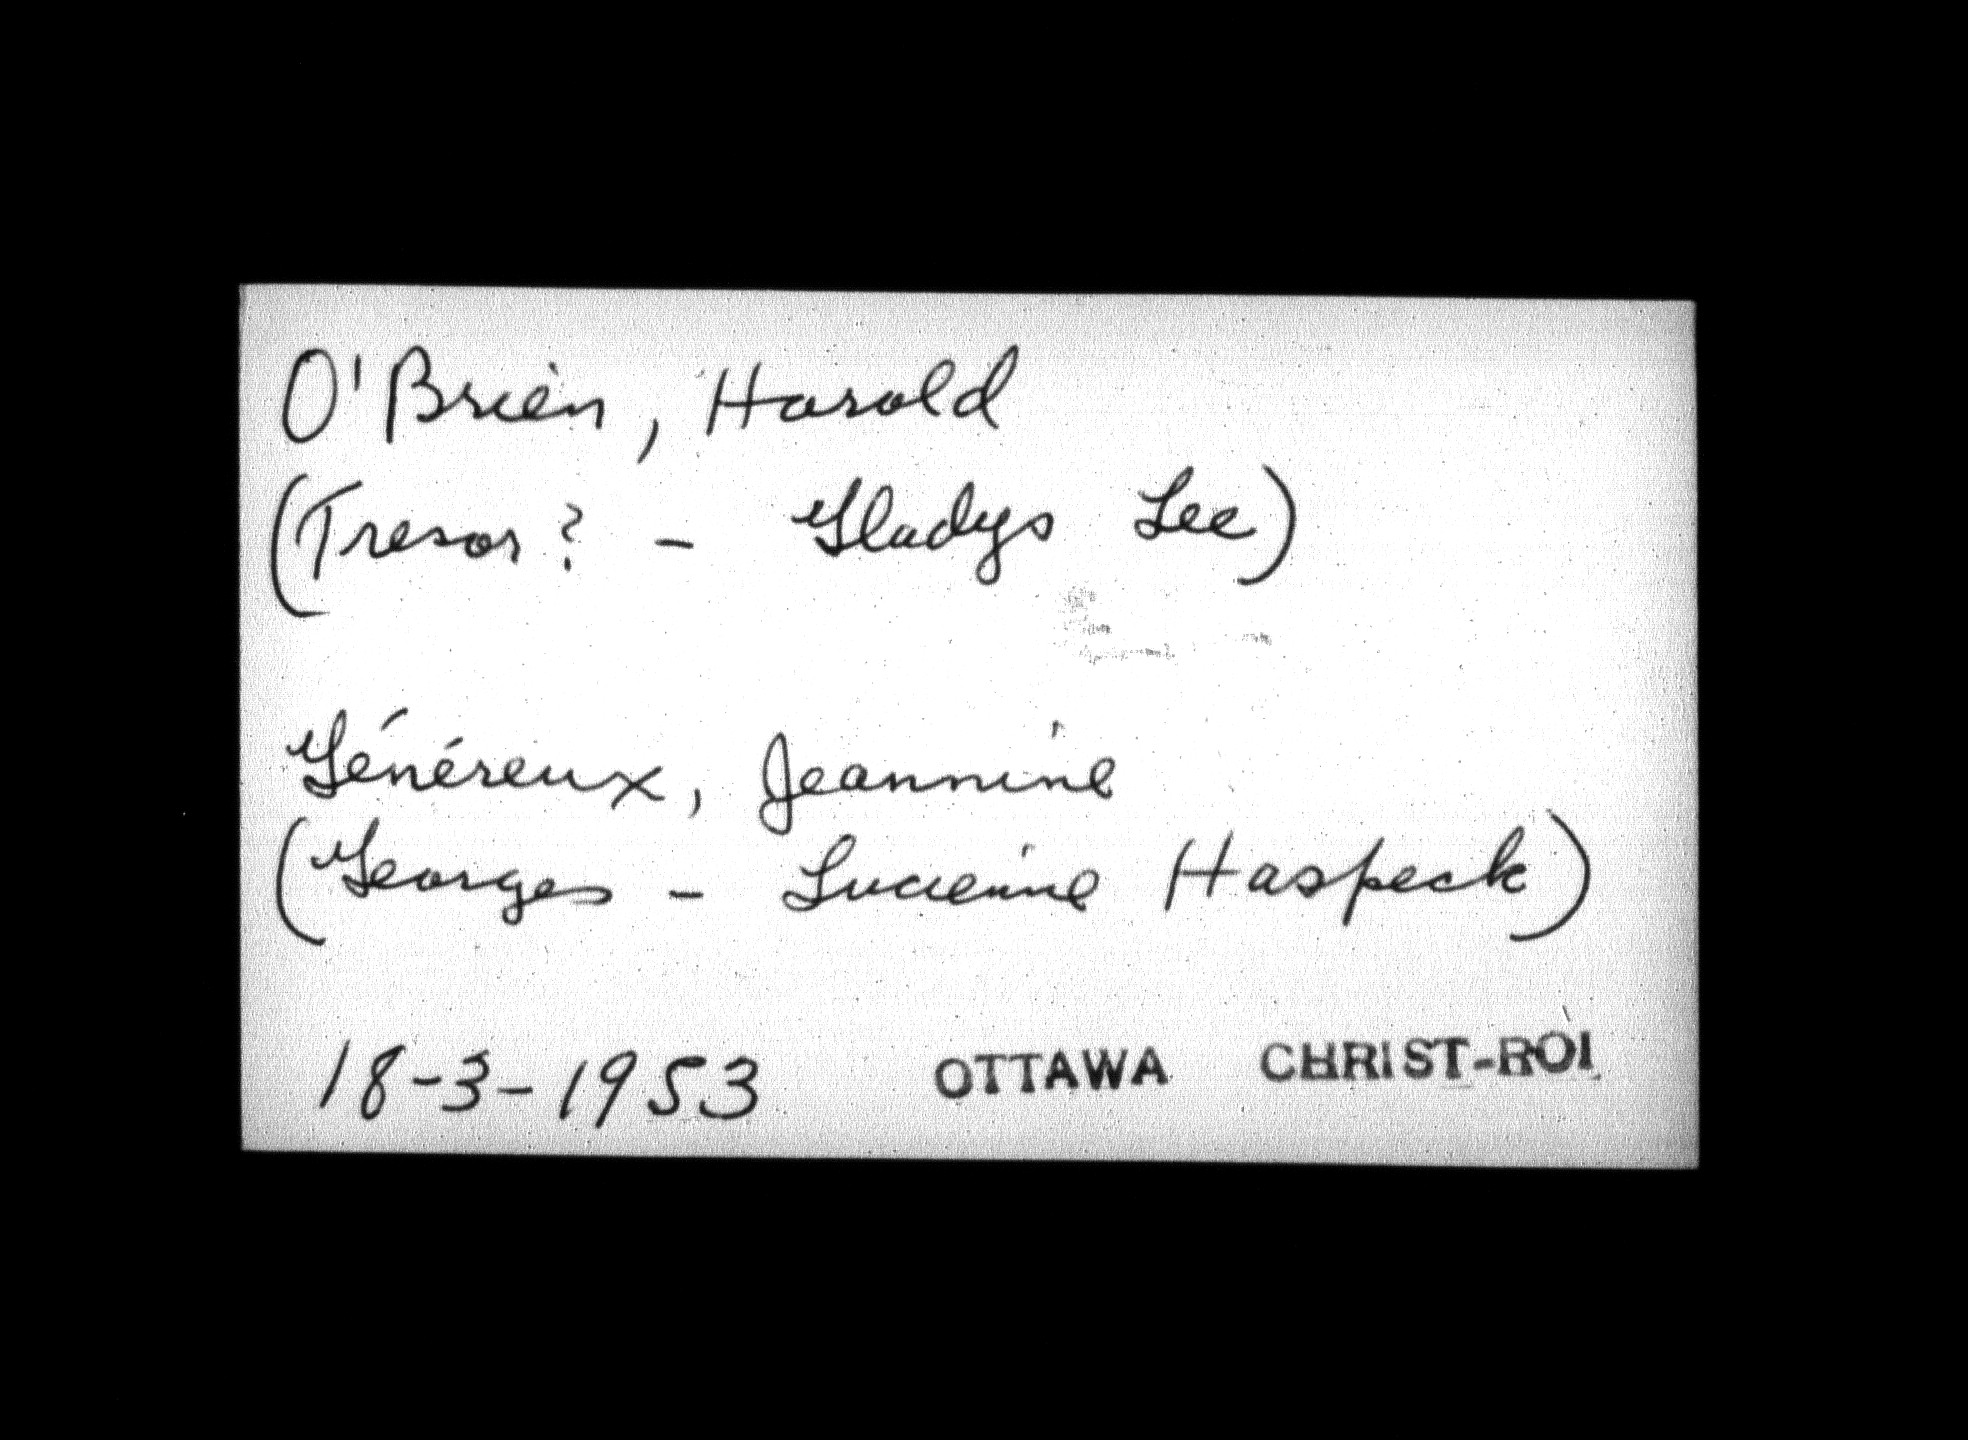 O'Brien, Harold
(Tresor? - Gladys Lee)
Généreux, Jeannine
(Georges - Lucienne Haspeck)
18-3-1953 OTTAWA CHRIST-ROI